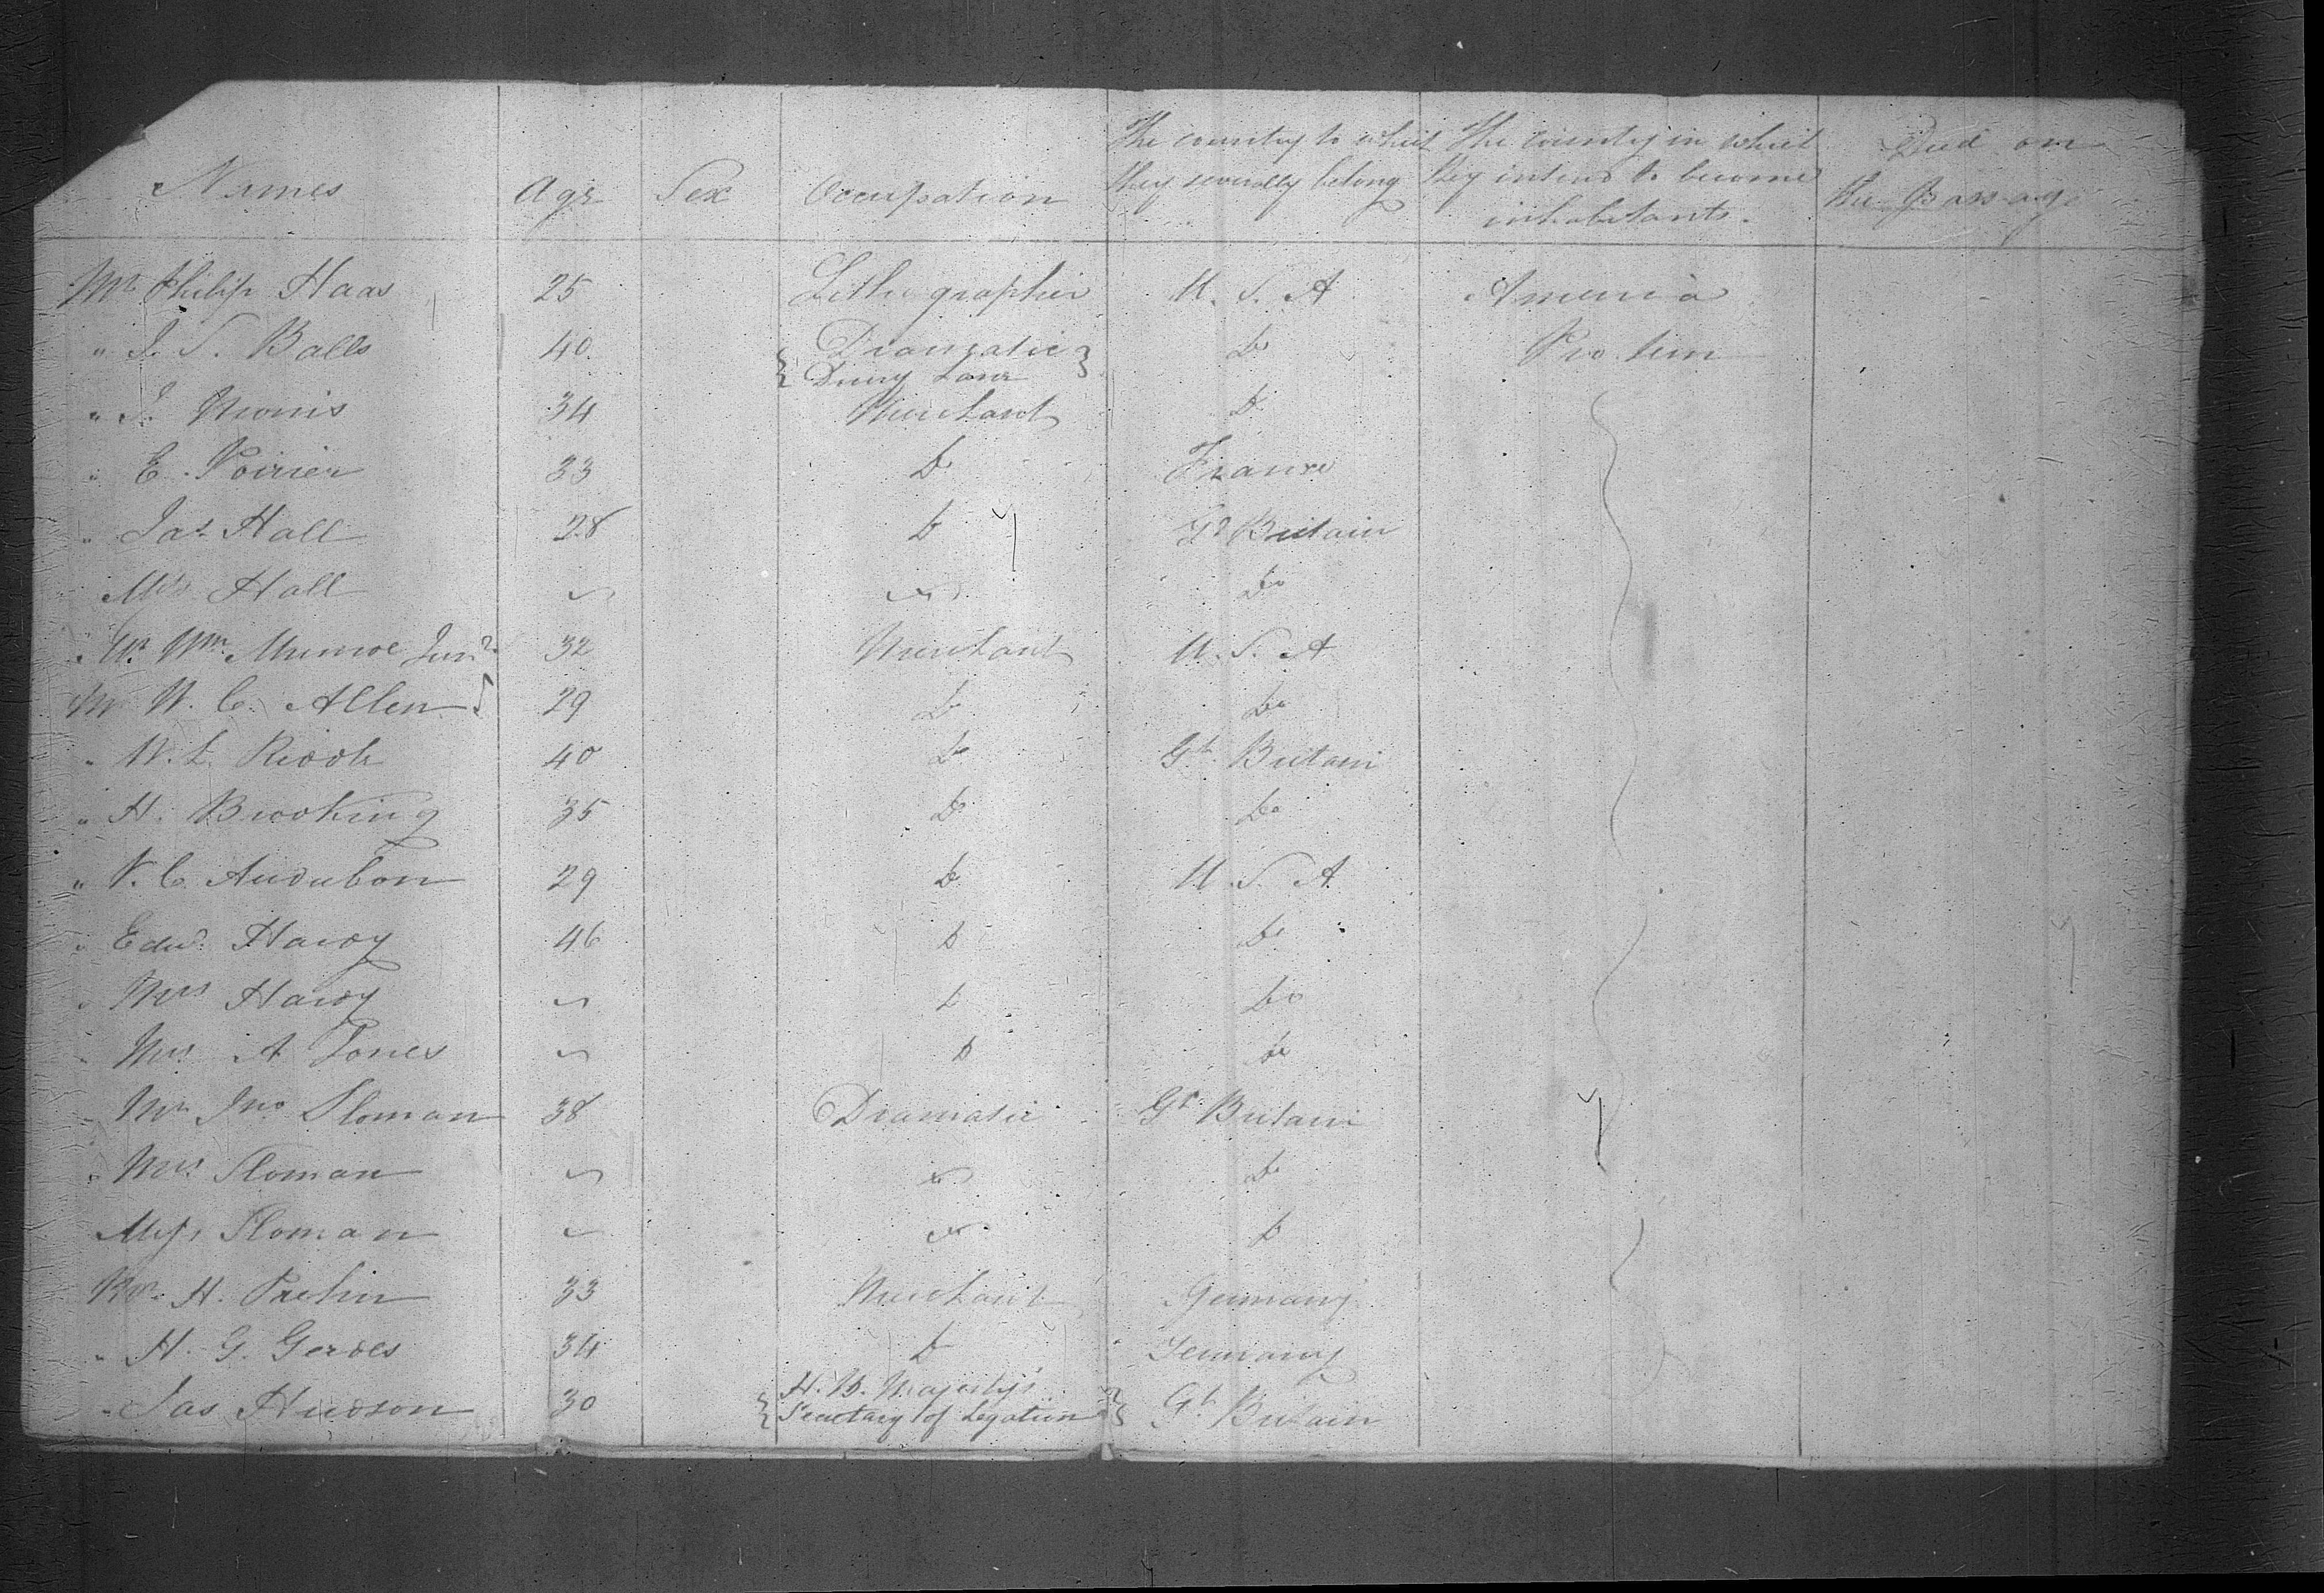 Names Age Sex Occupation The country to which they severally belong The country in which they intend to become inhabitants. Died on the Passage
Mr Philip Haas 25 Lithographer U. S. A America
" J. S. Balls 40 { Dramatic Drury Lane } Do Pro tem
" J. Morris 34 Merchant Do
" E. Poirier 33 Do France
" Jas Hall 28 Do Gt Britain
Mrs Hall Do
" Mr Wm Munroe Junr 32 Merchant U. S. A
Mr W. C. Allen 29 Do Do
" W. L. 40 Do Gt Britain
" H. Brooking 35 Do Do
" V. C. Audubon 29 Do U. S. A
" Edwd Hardy 46 Do Do
" Mrs Hardy Do Do
" Mrs A Jones Do Do
" Mr Jno Sloman 38 Dramatic Gt Britain
" Mrs Sloman Do
Miss Sloman Do
Mr H. 33 Merchant Germany
" H. G. Gerdes 34 Do Germany
" Jas Hudson 30 { H. B. Majesty's Secretary of Legation } Gt Britain